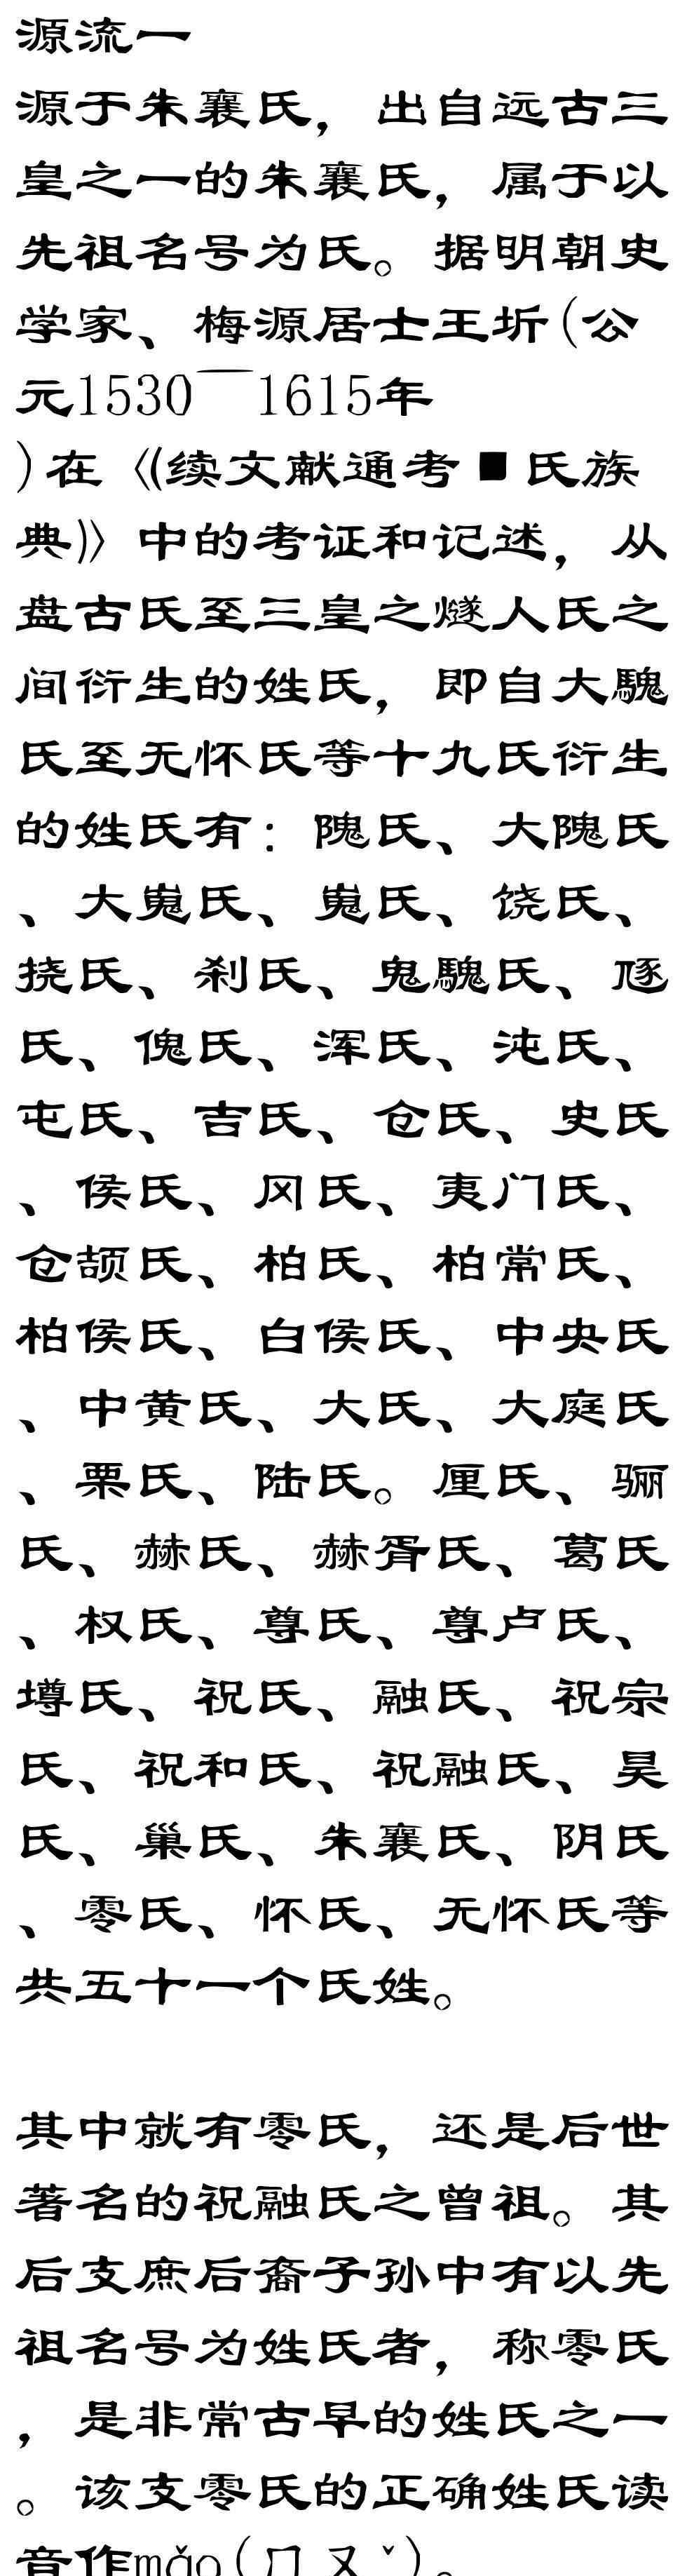 源流一
源于朱襄氏，出自远古三
皇之一的朱襄氏，属于以
先祖名号为氏。据明朝史
学家、梅源居士王圻(公
元1530¯1615年
)在《(续文献通考■氏族
典)》中的考证和记述，从
盘古氏至三皇之燧人氏之
间衍生的姓氏，即自大騩
氏至无怀氏等十九氏衍生
的姓氏有：隗氏、大隗氏
、大嵬氏、嵬氏、饶氏、
挠氏、刹氏、鬼騩氏、隧
氏、傀氏、浑氏、沌氏、
屯氏、吉氏、仓氏、史氏
、侯氏、冈氏、夷门氏、
仓颉氏、柏氏、柏常氏、
柏侯氏、白侯氏、中央氏
、中黄氏、大氏、大庭氏
、栗氏、陆氏。厘氏、骊
氏、赫氏、赫胥氏、葛氏
、权氏、尊氏、尊卢氏、
墫氏、祝氏、融氏、祝宗
氏、祝和氏、祝融氏、昊
氏、巢氏、朱襄氏、阴氏
、零氏、怀氏、无怀氏等
共五十一个氏姓。
其中就有零氏，还是后世
著名的祝融氏之曾祖。其
后支庶后裔子孙中有以先
祖名号为姓氏者，称零氏
，是非常古早的姓氏之一
。该支零氏的正确姓氏读
音作mǎo(ㄇㄡˇ)。